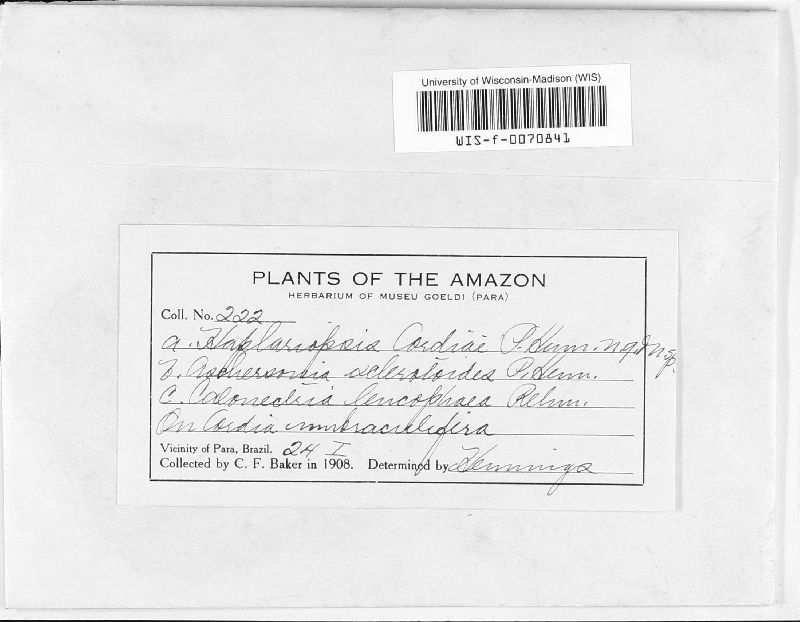 University of Wisconsin-Madison (WIS)
WIS-f-0070841
PLANTS OF THE AMAZON
HERBARIUM OF MUSEU GOELDI (PARA)
Coll. No. 222
a. Haplariopsis Cordiae P. Henn. n.g. & n. sp.
b. Aschersonia sclerotoides P. Henn.
c. Calonectria leucophaea Rehm.
On Cordia umbraculifera
Vicinity of Para, Brazil. 24 I
Collected by C. F. Baker in 1908. Determined by Hennings